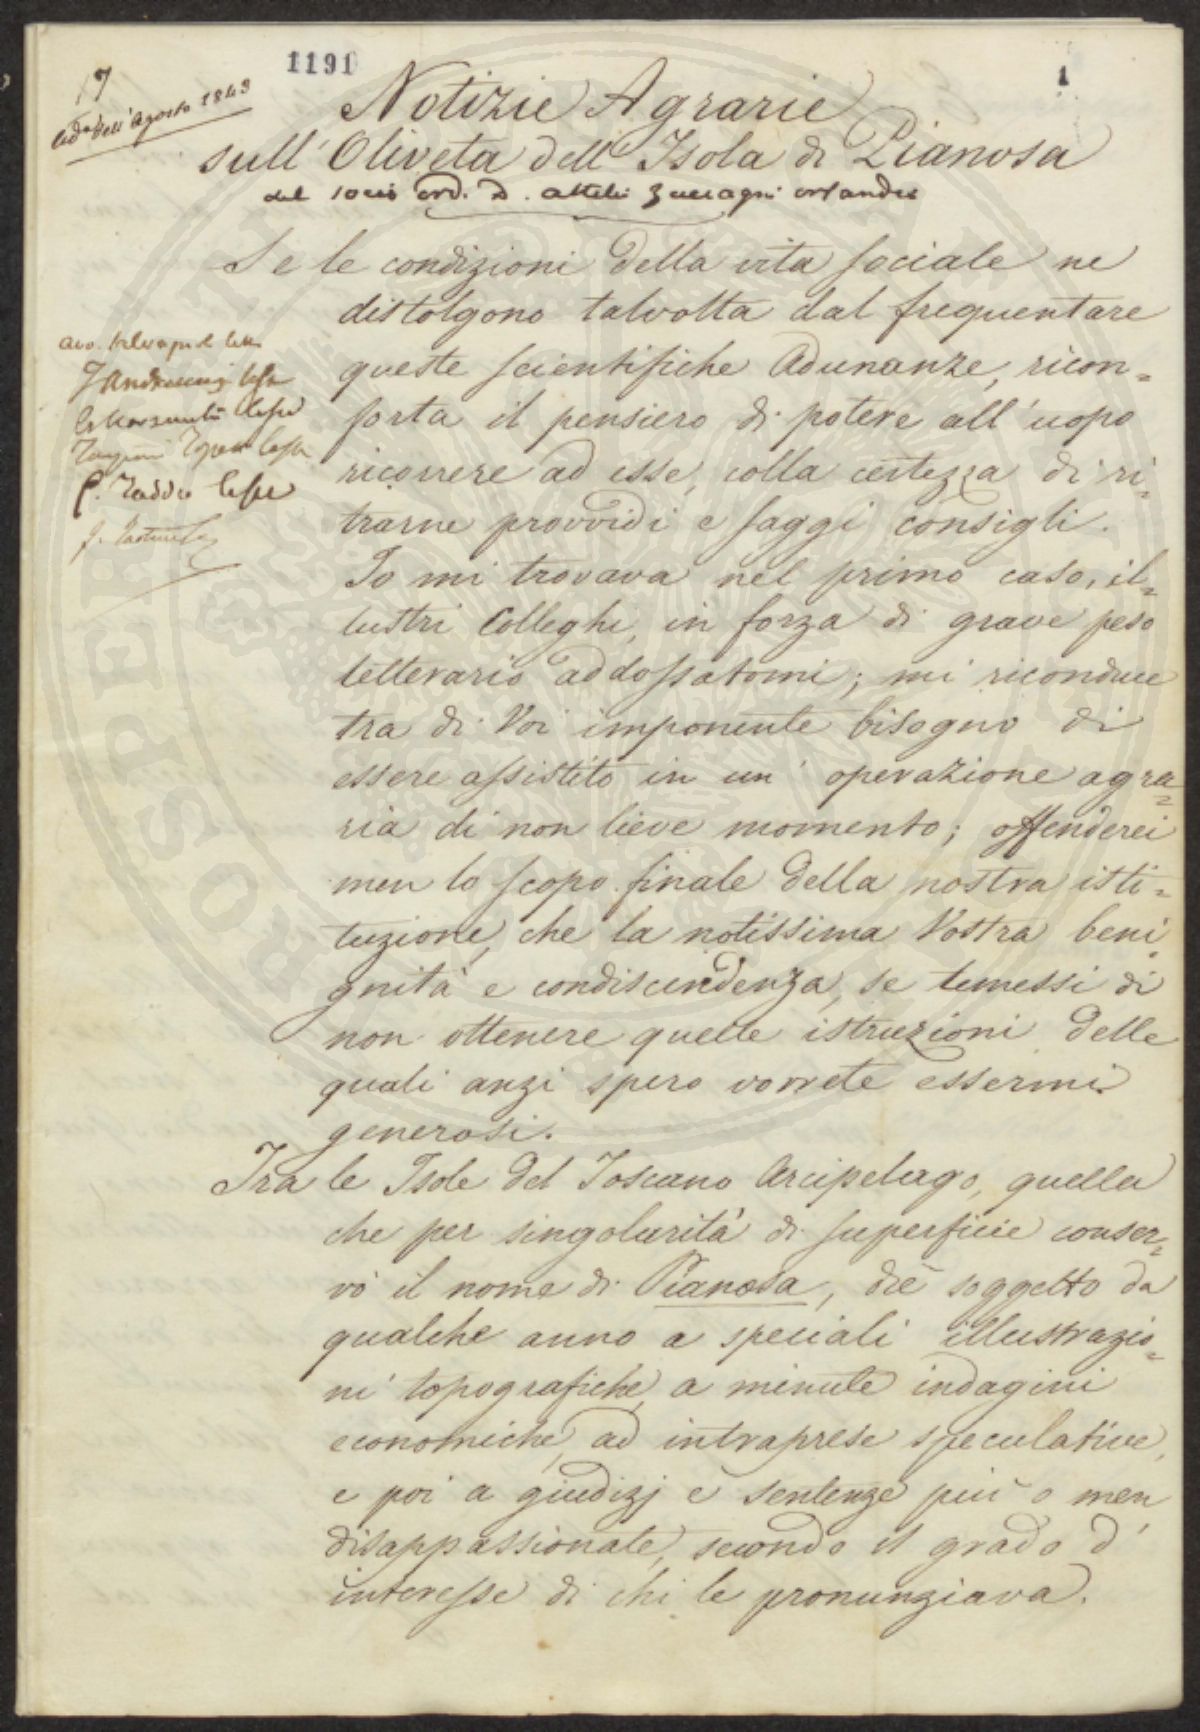 17
1191
1
Ad.a dell'Agosto 1843
Notizie Agrarie
sull'Oliveta dell'Isola di Pianosa
del socio ord. D. Attilio Zuccagni Orlandini
Se le condizioni della vita sociale ne
distolgono talvolta dal frequentare
queste scientifiche Adunanze, ricon=
forta il pensiero di potere all'uopo
ricorrere ad esse, colla certezza di ri=
trarne provvidi e saggi consigli.
Io mi trovava nel primo caso, il=
lustri Colleghi, in forza di grave peso
letterario addossatomi; mi riconduce
tra di Voi imponente bisogno di
essere assistito in un'operazione agra=
ria di non lieve momento; offenderei
men lo scopo finale della nostra isti=
tuzione, che la notissima Vostra beni=
gnità e condiscendenza, se temessi di
non ottenere quelle istruzioni delle
quali anzi spero vorrete essermi
generosi.
Tra le Isole del Toscano Arcipelago, quella
che per singolarità di superficie conser=
vò il nome di Pianosa, diè soggetto da
qualche anno a speciali illustrazio=
ni topografiche, a minute indagini
economiche, ad intraprese speculative,
e poi a giudizj e sentenze più o men
disappassionate, secondo il grado d'
interesse di chi le pronunziava.
lesse
lesse
lesse
P. Taddei lesse